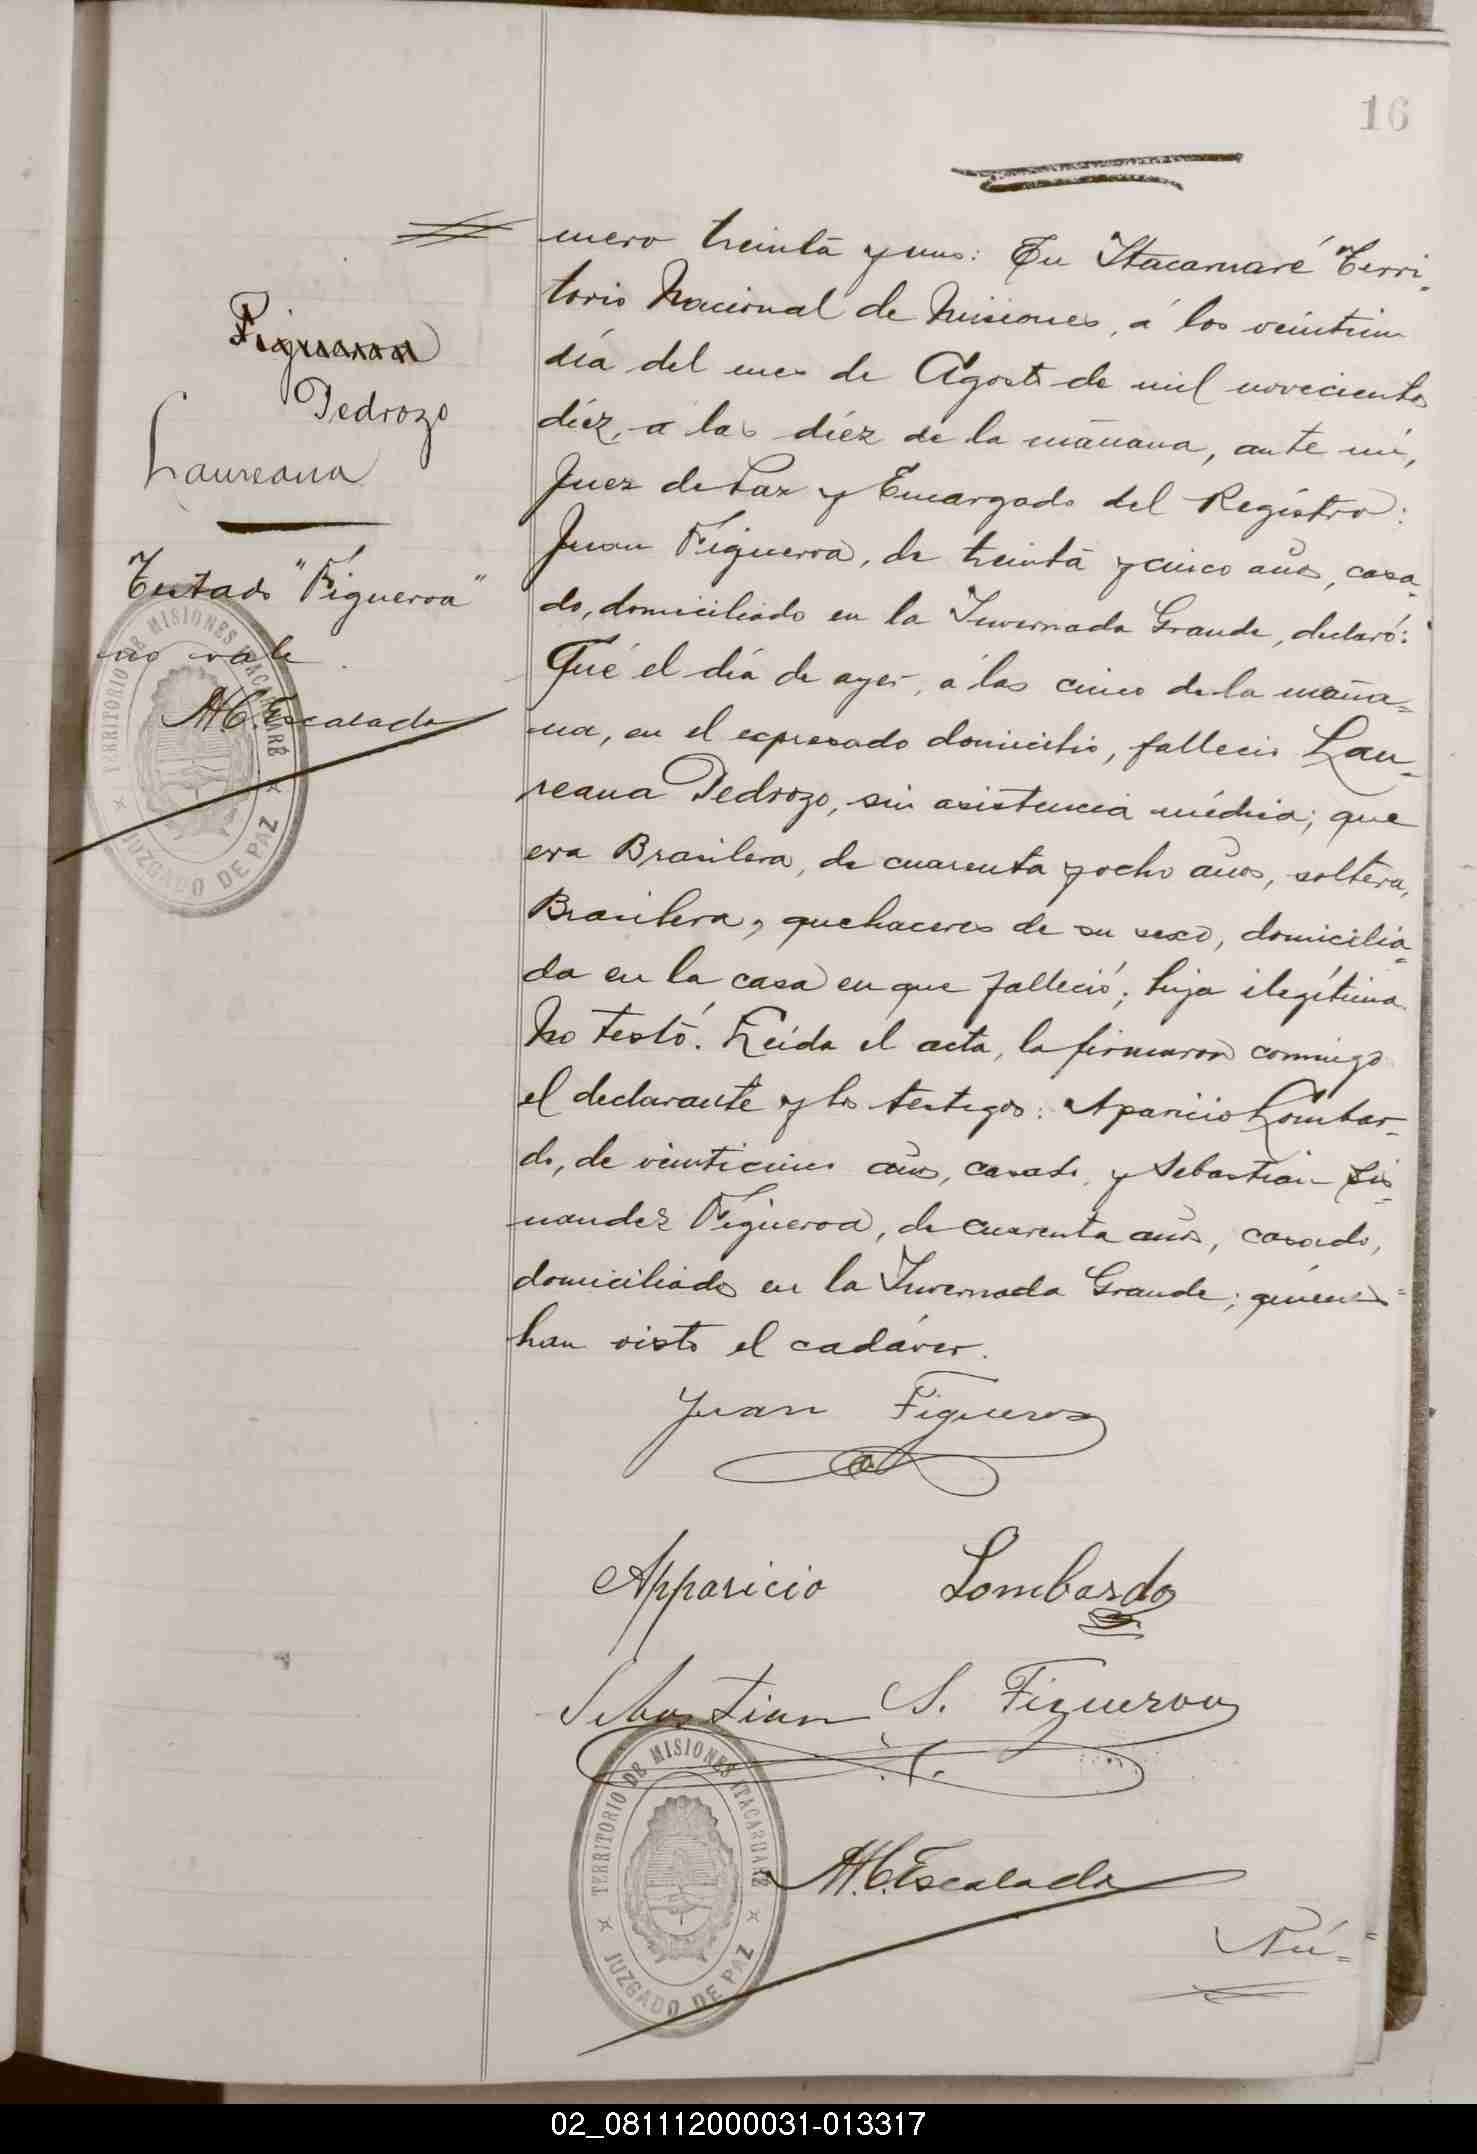 16
mero treinta y uno: En Itacaruaré Terri-
torio Nacional de Misiones, á los veintiun
día del mes de Agosto de mil novecientos
diéz, a las diéz de la mañana, ante mí,
Juez de Paz y Encargado del Registro:
Juan Figueroa, de treinta y cinco años, casa-
do, domiciliado en la Invernada Grande, declaró:
Qué el día de ayer, á las cinco de la maña-
na, en el expresado domicilio, falleció Lau-
reana Pedrozo, sin asistencia médica; que
era Brasilera, de cuarenta y ocho años, soltera,
Brasilera, quehaceres de su sexo, domicilia-
da en la casa en que falleció; hija ilegítima
No testó. Leída el acta, la firmaron conmigo
el declarante y los testigos: Aparicio Lombar-
do, de veinticinco años, casado, y Sebastian Sis-
nandez Figueroa, de cuarenta años, casado,
domiciliados en la Invernada Grande; quienes
han visto el cadáver.
Figueroa
Pedrozo
Laureana
Testado "Figueroa"
no vale.
M.C. Escalada
TERRITORIO DE MISIONES ITACARUARÉ
JUZGADO DE PAZ
Juan Figueroa
Apparicio Lombardo
Sebastian S. Figueroa
TERRITORIO DE MISIONES ITACARUARÉ
JUZGADO DE PAZ
M.C. Escalada
Nú-
02_081112000031-013317